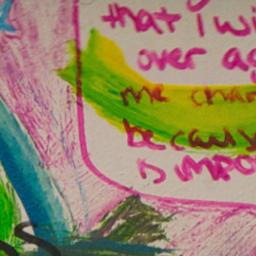 that i wi
over ag
me chan
because
is impo